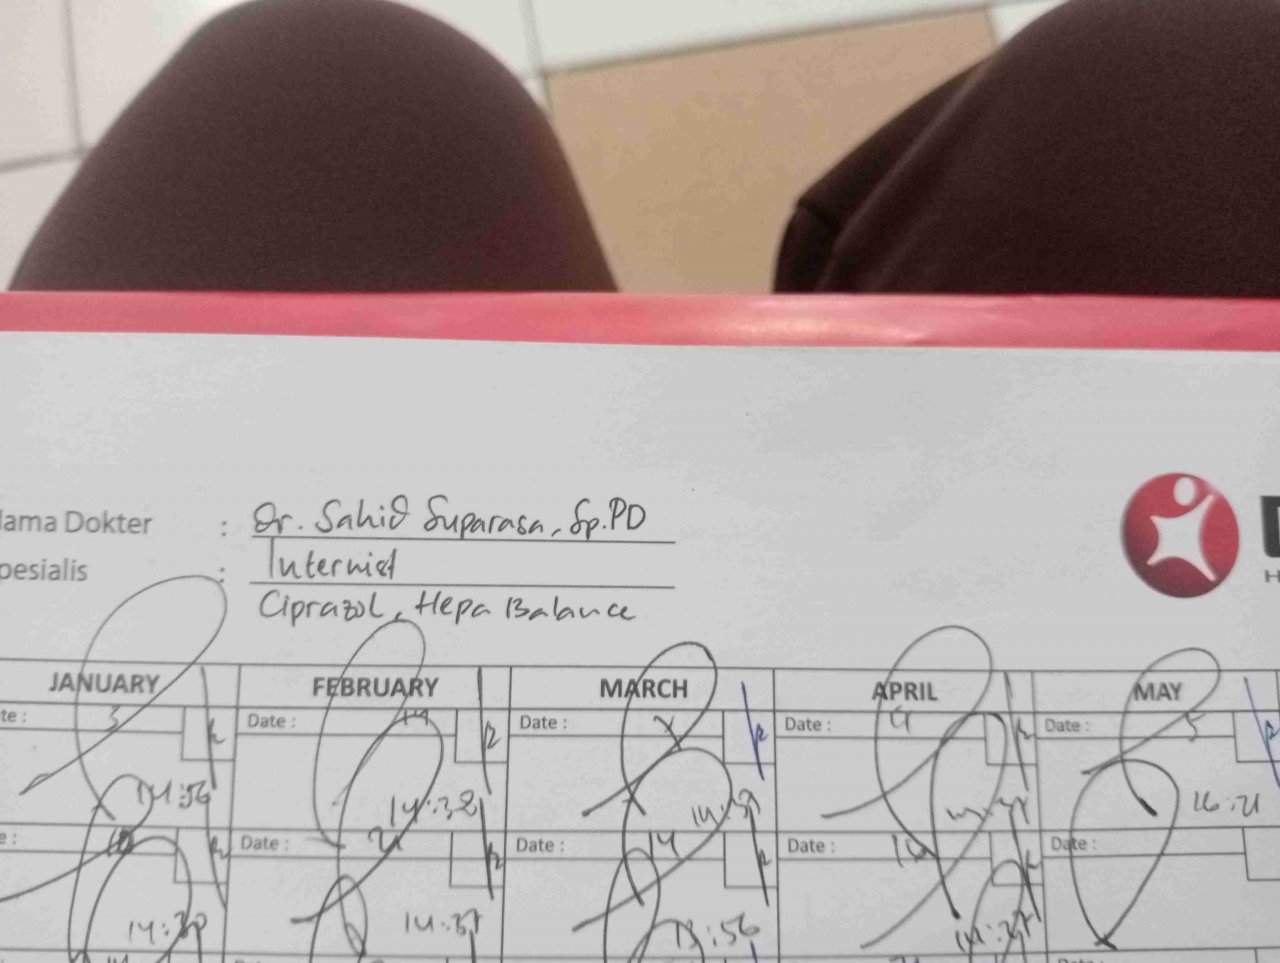 ama Dokter : Dr. Sahid Suparasa, Sp.PD
pesialis : Internist
Ciprazol, Hepa Balance
JANUARY FEBRUARY MARCH APRIL MAY
te : 3 Date : 14 Date : Date : 9 Date : 5
14:56 14:38 14:39 16:21
e : 10 Date : 21 Date : 14 Date : Date :
14:30 14:37 13:56 14:37